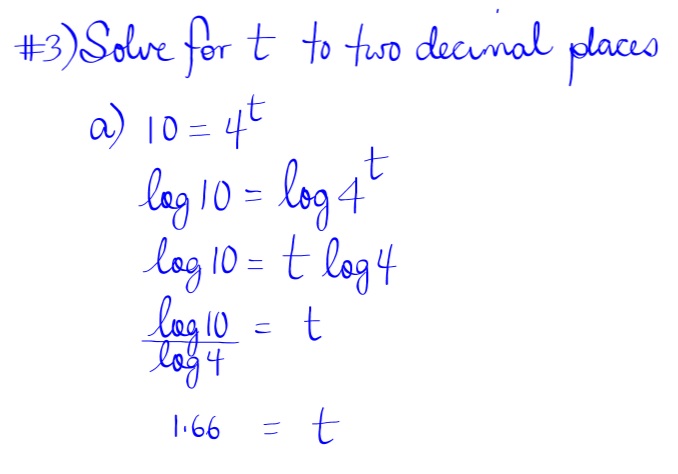 #3) Solve for t to two decimal places
a) 10 = 4^t
log 10 = log 4^t
log 10 = t log 4
log 10 / log 4 = t
1.66 = t